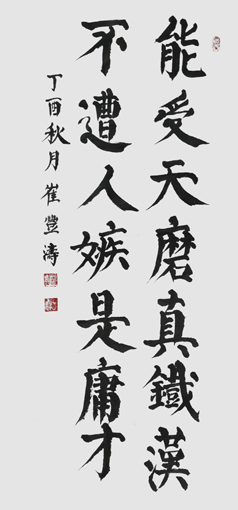 能受天磨真鐵漢
不遭人嫉是庸才
丁酉秋月崔豐濤